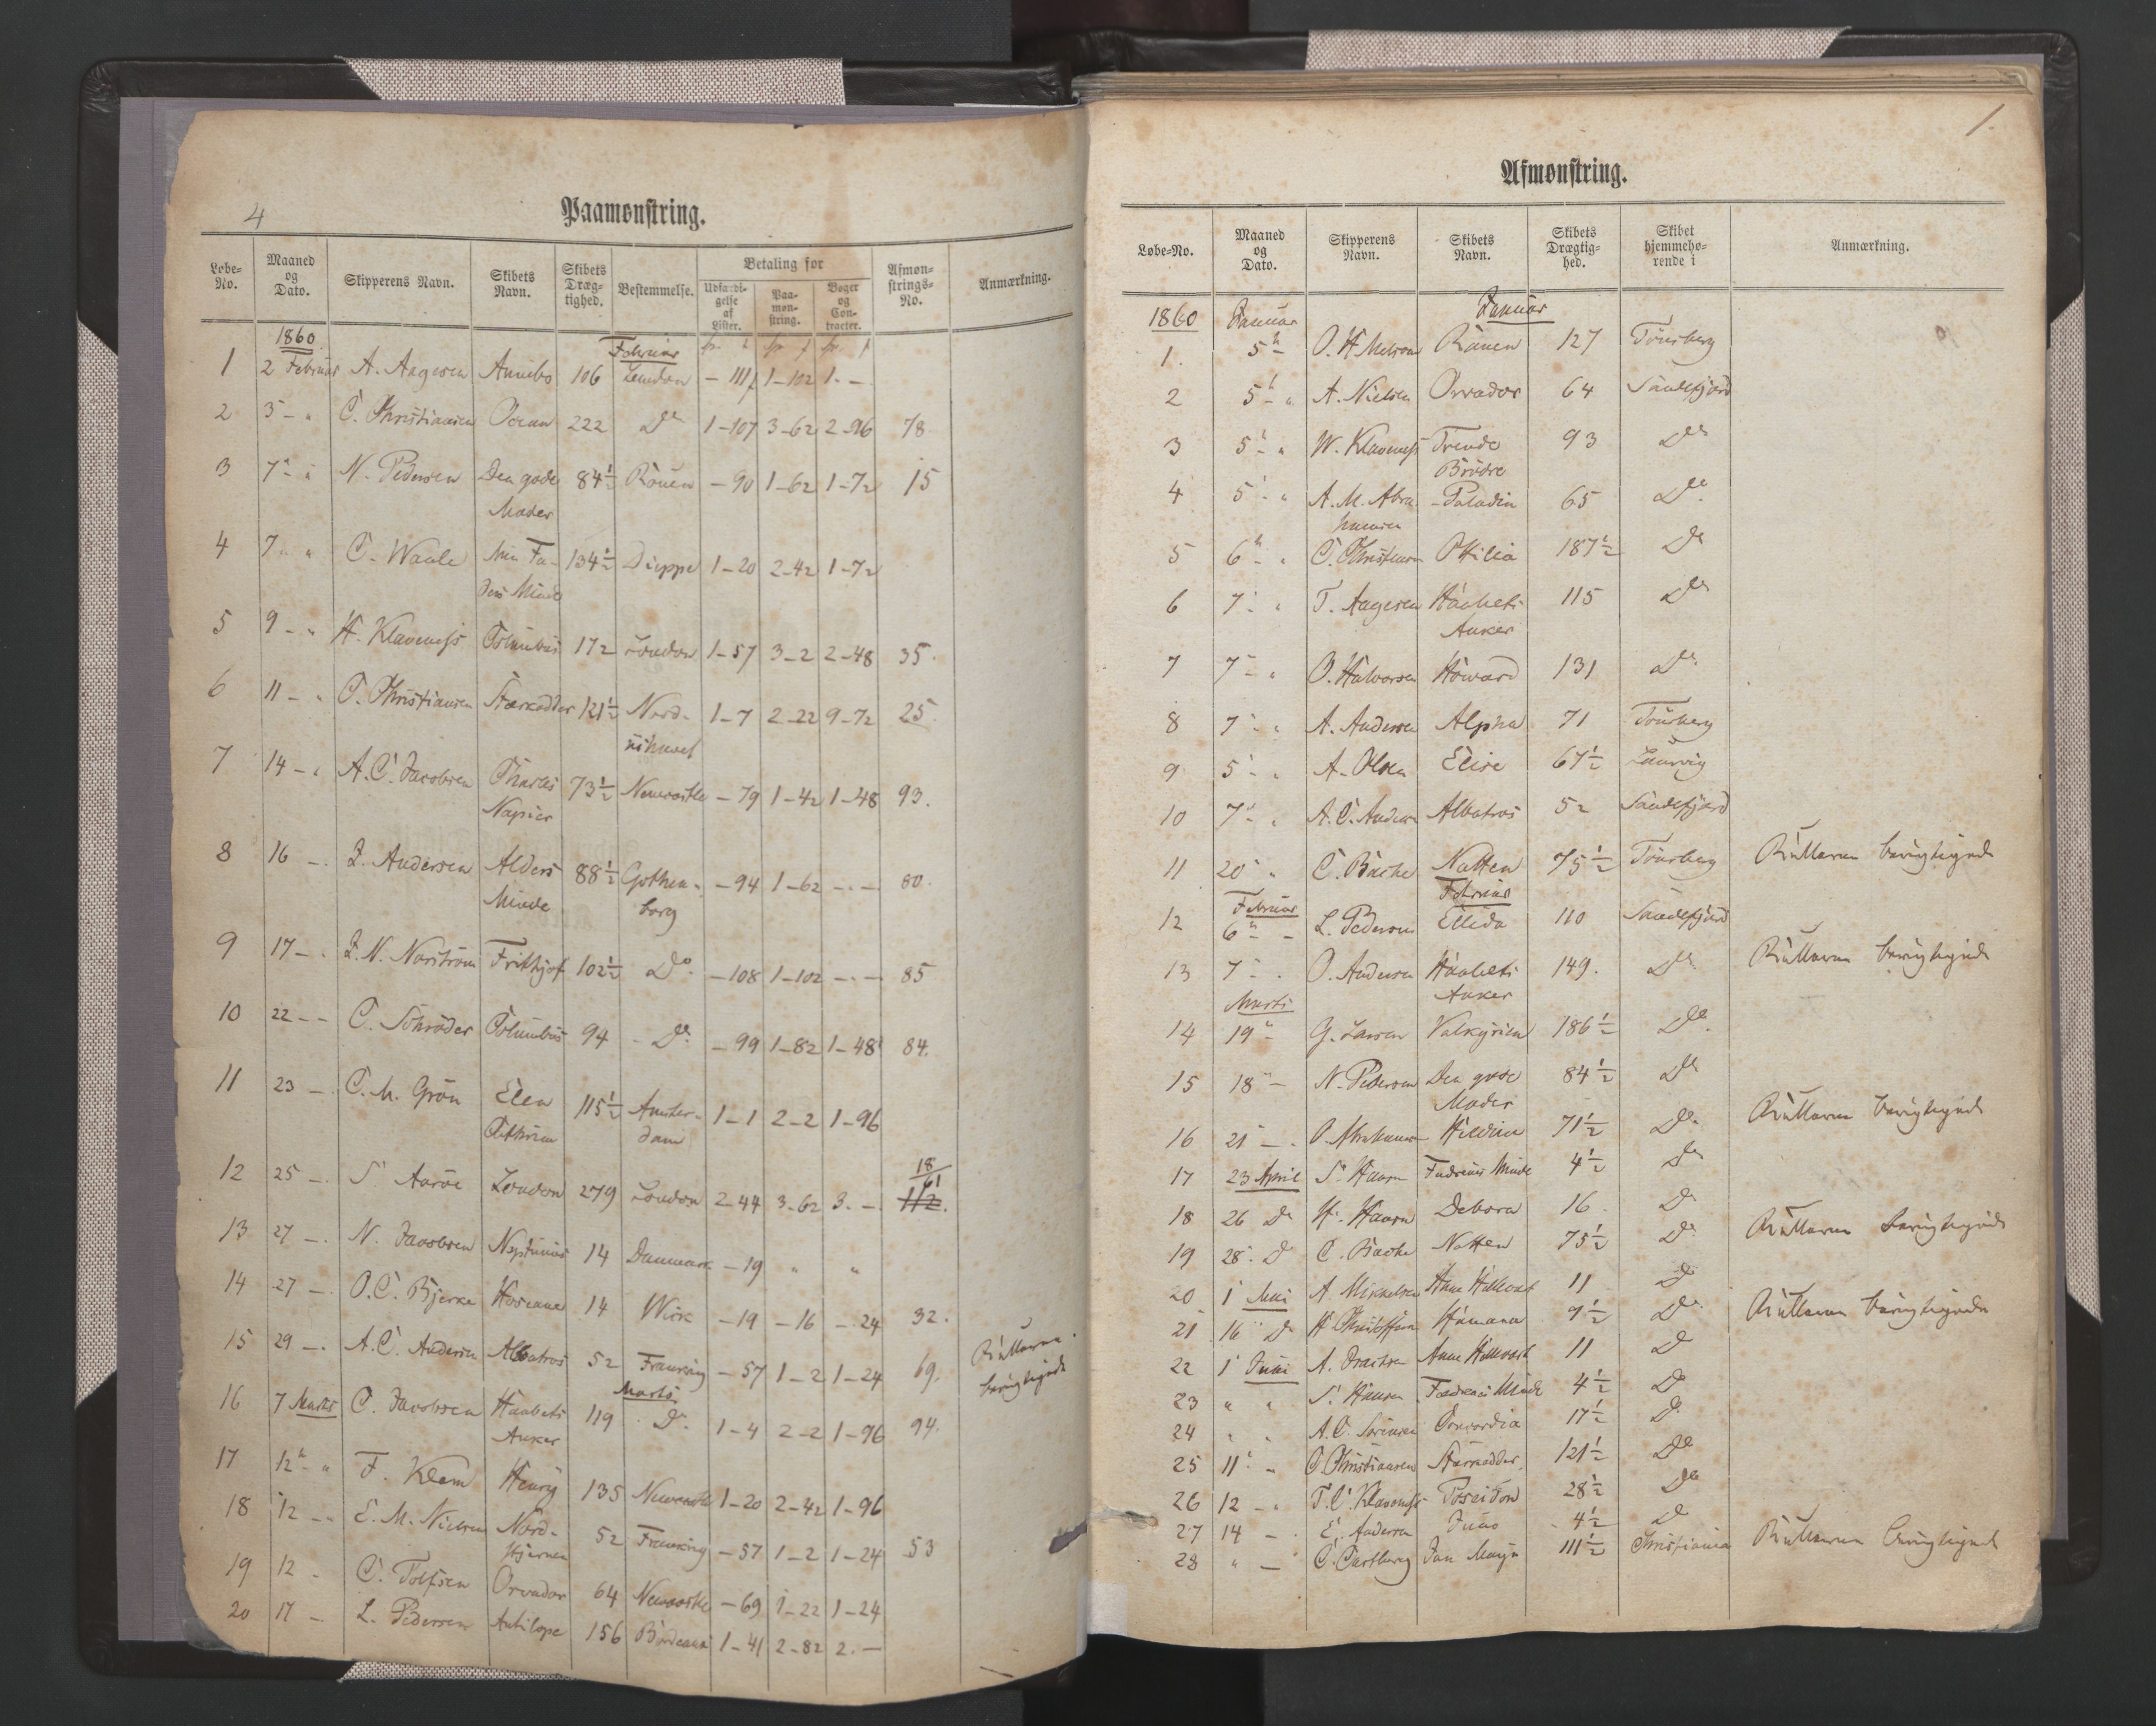 4
Paamønstring.
Løbe-No. Maaned og Dato. Skipperens Navn. Skibets Navn. Skibets Drægtighed. Bestemmelse. Betaling for Udfærdigelse af Lister. Paamønstring. Bøger og Contracter. Afmønstrings-No. Anmærkning.
1860 Februar
1 2 Februar A. Aagesen Annebo 106 London - 111 1-102 1.-
2 5 - " C. Christiansen Ocean 222 Do 1-107 3-62 2-96 78
3 7 - " N. Pedersen Den gode 84½ Rouen - 90 1-62 1-72 15
Moder
4 7 " " C. Waale Min Fa- 134½ Dieppe 1-20 2-42 1-72
ders Minde
5 9 - " H. Klaveness Columbus 172 London 1-57 3-2 2-48 35.
6 11 - " C. Christiansen Starkodder 121½ Nord- 1-7 2-22 9-72 25.
ishavet
7 14 - " A. C. Jacobsen Charles 73½ Newcastle - 79 1-42 1-48 93.
Napier
8 16 - . Andersen Alders 88½ Gothen- - 94 1-62 -.- 80.
Minde borg
9 17 - . N. Norström Frithjof 102½ Do. - 108 1-102 -.- 85
10 22 - - C. Schrøder Columbus 94 - Do. - 99 1-82 1-48 84.
11 23 - C. M. Grøn Elen 115½ Amster- 1-1 2-2 1-96
Cathrine dam
12 25 - . S. Aarøe London 279 London 2-44 3-62 3.- 18/61 112.
13 27 - . N. Jacobsen Neptunus 14 Danmark - 19 " "
14 27 - . O. C. Bjerke Hoseana 14 Wisk - 19 - 16 - 24 32.
15 29 - . A. C. Andersen Albatros 52 Frankrig - 57 1-2 1-24 69. Rullerne berigtigede
Marts
16 7 Marts C. Jacobsen Haabets 119 Do. 1-4 2-2 1-96 94.
Anker
17 12 - " F. Klem Henrij 135 Newcastle 1-20 2-42 1-96
18 12 - " E. M. Nielsen Nord- 52 Frankrig - 57 1-2 1-24 53
stjernen
19 12 - C. Tolfsen Orvador 64 Newcastle - 69 1-22 1-24
20 17 - L. Pedersen Antilope 156 Bordeaux 1-41 2-82 2.-
1.
Afmønstring.
Løbe-No. Maaned og Dato. Skipperens Navn. Skibets Navn. Skibets Drægtighed. Skibet hjemmehørende i Anmærkning.
1860 Januar Januar
1. 5 - O. H. Rouen 127 Tønsberg
2 5 - " A. Nielsen Orvador 64 Sandefjord
3 5 - " W. Klaveness Trende 93 Do
Brødre
4 5 - " A. M. Abra- Paladin 65 Do.
hamsen
5 6 - " C. Christiansen Ottilia 187½ Do
6 7 - " T. Aagesen Haabets 115 Do
Anker
7 7 - " O. Halvorsen Howard 131 Do
8 7 - " A. Andersen Alpha 71 Tønsberg
9 5 - " A. Olsen Elise 67½ Laurvig
10 7 - " A. C. Andersen Albatros 52 Sandefjord
11 20 " C. Bache Natten 75½ Tønsberg Rullerne berigtigede
Februar Februar
12 6 - - L. Pedersen Ellida 110 Sandefjord
13 7 - . O. Andersen Haabets 149. Do Rullerne berigtigede
Anker
Marts
14 19 - G. Larsen Valkyrien 186½ Do.
15 18 - N. Pedersen Den gode 84½ Do
Moder
16 21 - . O. Abrahamsen Hildine 71½ Do. Rullerne berigtigede
17 23 April S. Hansen Fædrenes Minde 4½ Do
18 26 Do H. Hansen Debora 16. Do
19 28. Do C. Bache Natten 75½ Do. Rullerne berigtigede
20 1 Mai A. Mikkelsen Anne Hellevast 11 Do
21. 16 Do H. Christoffersen Humana 9½ Do. Rullerne berigtigede
22 1 Juni A. Anne Hellevast 11 Do
23 " " S. Hansen Fædrenes Minde 4½ Do
24 " " A. C. Sørensen Concordia 17½ Do
25 11 - " C. Christiansen Starkodder 121½ Do
26 12 - " T. C. Klaveness Poseidon 28½ Do
27 14 - E. Andersen Juno 4½ Do
28 " - C. Carlberg Jan Mayn 111½ Christiania Rullerne berigtigede